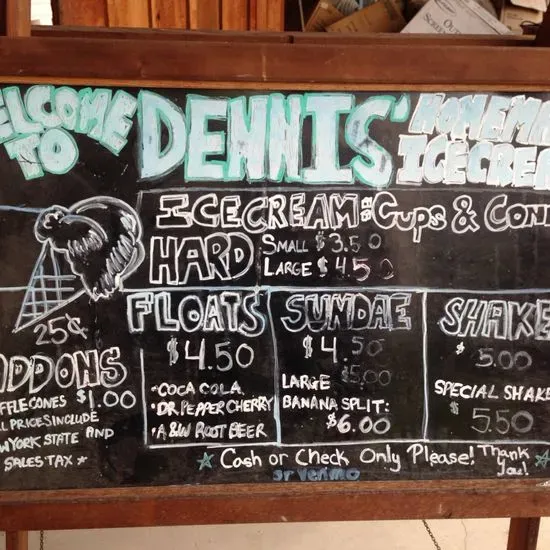 ELCOME TO DENNIS' HOMEM
ICECREA
ICECREAM: Cups & CON
HARD SMALL $3.50
LARGE $4.50
25¢
ADDONS
FFLECONES $1.00
L PRICES INCLUDE
W YORK STATE AND
SALES TAX *
FLOATS
$4.50
• COCA COLA
• DR. PEPPER CHERRY
• A&W ROOT BEER
SUNDAE
$4.50
LARGE $5.00
BANANA SPLIT:
$6.00
SHAKE
$5.00
SPECIAL SHAK
$5.50
☆ Cash or Check Only Please! Thank you! ☆